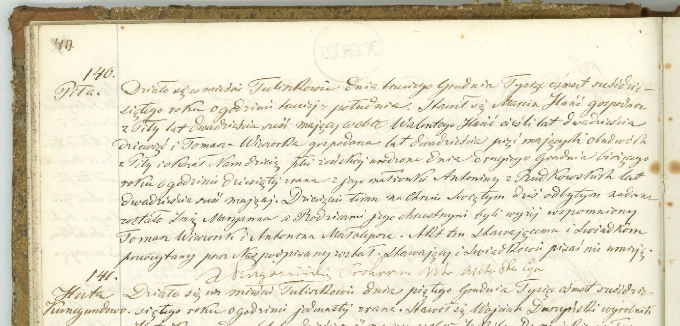 40
140.
Piła.
Działo się w mieście Tuliszkowie dnia trzeciego Grudnia Tysiąc ośmset sześćdzie-
siątego roku o godzinie trzeciej z południa. Stawił się Marcin gospodarz
z Piły lat dwadzieścia sześć mający wobec Walentego cieśli lat dwadzieścia
dziewięć i Tomasza Wiewiorka gospodarza lat dwadzieścia pięć mających obudwóch
z Piły i okazał Nam dziecię płci żeńskiej urodzone dnia Grudnia bieżącego
roku o godzinie dziesiątej zrana z jego małżonki Antoniny z Rudkowskich lat
dwadzieścia sześć mającej. Dziecięciu temu na Chrzcie Świętym dziś odbytym nadane
zostało Imię Maryjanna a Rodzicami jego chrzestnymi byli wyżej wspomniony
Tomasz Wiewiorki i Antonina Matalipa. Akt ten Stawającemu i Świadkom
przeczytany przez Nas podpisany został, Stawający i Świadkowie pisać nie umieją.
141.
Huta
Kunegundowo
Działo się w mieście Tuliszkowie dnia piątego Grudnia Tysiąc ośmset sześćdzie-
siątego roku o godzinie jedenastej zrana. Stawił się Wojciech wyrobnik